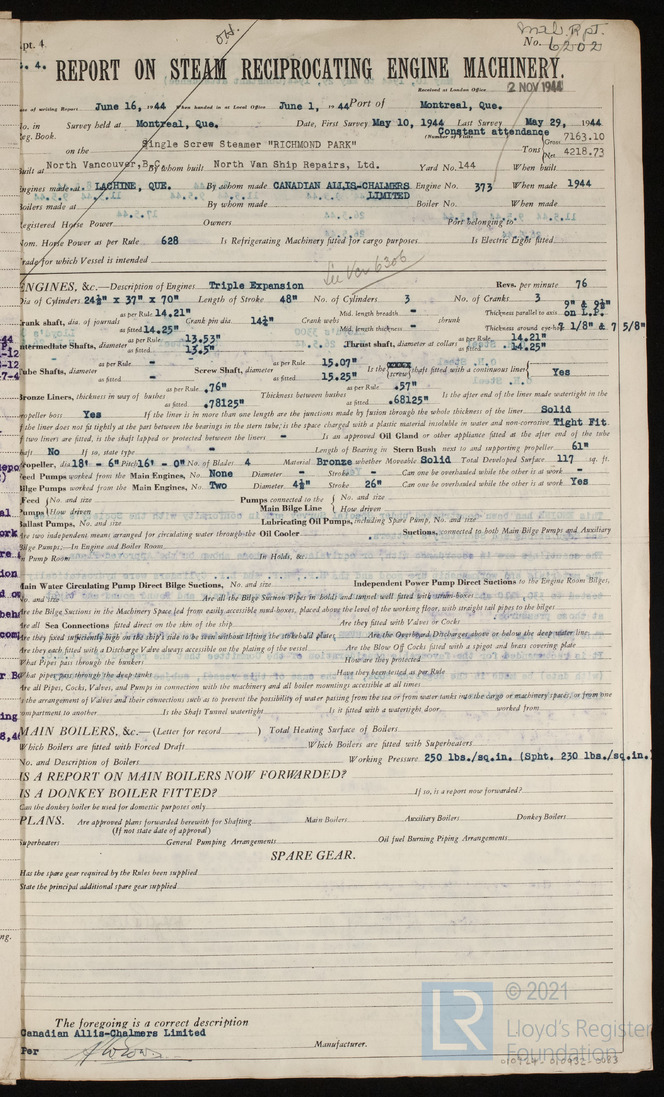 Rpt. 4.
No. 6202
REPORT ON STEAM RECIPROCATING ENGINE MACHINERY.
Received at London Office 2 NOV 1944
Date of writing Report June 16, 1944 When handed in at Local Office June 1, 1944 Port of Montreal, Que.
No. in Survey held at Montreal, Que. Date, First Survey May 10, 1944 Last Survey May 29, 1944
Reg. Book. (Number of Visits Constant attendance
on the Single Screw Steamer "RICHMOND PARK" Tons Gross 7163.10 Net 4218.73
Built at North Vancouver, B.C. By whom built North Van Ship Repairs, Ltd. Yard No. 144 When built
Engines made at LACHINE, QUE. By whom made CANADIAN ALLIS-CHALMERS LIMITED Engine No. 373 When made 1944
Boilers made at By whom made Boiler No. When made
Registered Horse Power Owners Port belonging to
Nom. Horse Power as per Rule 628 Is Refrigerating Machinery fitted for cargo purposes Is Electric Light fitted
Trade for which Vessel is intended
See Van 6306
ENGINES, &c.—Description of Engines Triple Expansion Revs. per minute 76
Dia of Cylinders 24½" x 37" x 70" Length of Stroke 48" No. of Cylinders 3 No. of Cranks 3
Crank shaft, dia. of journals as per Rule 14.21" as fitted 14.25" Crank pin dia. 14¼" Crank webs Mid. length breadth - Mid. length thickness - shrunk Thickness parallel to axis 9" & 9½" on L.P. Thickness around eye-hole 7 1/8" & 7 5/8"
Intermediate Shafts, diameter as per Rule 13.53" as fitted 13.5" Thrust shaft, diameter at collars as per Rule 14.21" as fitted 14.25"
Tube Shafts, diameter as per Rule - as fitted - Screw Shaft, diameter as per Rule 15.07" as fitted 15.25" Is the screw shaft fitted with a continuous liner Yes
Bronze Liners, thickness in way of bushes as per Rule .76" as fitted .78125" Thickness between bushes as per Rule .57" as fitted .68125" Is the after end of the liner made watertight in the
propeller boss Yes If the liner is in more than one length are the junctions made by fusion through the whole thickness of the liner Solid
If the liner does not fit tightly at the part between the bearings in the stern tube, is the space charged with a plastic material insoluble in water and non-corrosive Tight Fit
If two liners are fitted, is the shaft lapped or protected between the liners - Is an approved Oil Gland or other appliance fitted at the after end of the tube
shaft No If so, state type - Length of Bearing in Stern Bush next to and supporting propeller 61"
Propeller, dia 18' - 6" Pitch 16' - 0" No. of Blades 4 Material Bronze whether Moveable Solid Total Developed Surface 117 sq. ft.
Feed Pumps worked from the Main Engines, No. None Diameter - Stroke - Can one be overhauled while the other is at work -
Bilge Pumps worked from the Main Engines, No. Two Diameter 4½" Stroke 26" Can one be overhauled while the other is at work Yes
Feed Pumps No. and size How driven Pumps connected to the Main Bilge Line No. and size How driven
Ballast Pumps, No. and size Lubricating Oil Pumps, including Spare Pump, No. and size
Are two independent means arranged for circulating water through the Oil Cooler Suctions, connected to both Main Bilge Pumps and Auxiliary
Bilge Pumps;—In Engine and Boiler Room
In Pump Room In Holds, &c.
Main Water Circulating Pump Direct Bilge Suctions, No. and size Independent Power Pump Direct Suctions to the Engine Room Bilges,
No. and size Are all the Bilge Suction Pipes in holds and tunnel well fitted with strum-boxes
Are the Bilge Suctions in the Machinery Space led from easily accessible mud-boxes, placed above the level of the working floor, with straight tail pipes to the bilges
Are all Sea Connections fitted direct on the skin of the ship Are they fitted with Valves or Cocks
Are they fixed sufficiently high on the ship's side to be seen without lifting the stokehold plates Are the Overboard Discharges above or below the deep water line
Are they each fitted with a Discharge Valve always accessible on the plating of the vessel Are the Blow Off Cocks fitted with a spigot and brass covering plate
What Pipes pass through the bunkers How are they protected
What pipes pass through the deep tanks Have they been tested as per Rule
Are all Pipes, Cocks, Valves, and Pumps in connection with the machinery and all boiler mountings accessible at all times
Is the arrangement of Valves and their connections such as to prevent the possibility of water passing from the sea or from water tanks into the cargo or machinery spaces, or from one
compartment to another Is the Shaft Tunnel watertight Is it fitted with a watertight door worked from
MAIN BOILERS, &c.—(Letter for record ) Total Heating Surface of Boilers
Which Boilers are fitted with Forced Draft Which Boilers are fitted with Superheaters
No. and Description of Boilers Working Pressure 250 lbs./sq.in. (Spht. 230 lbs./sq.in.)
IS A REPORT ON MAIN BOILERS NOW FORWARDED?
IS A DONKEY BOILER FITTED? If so, is a report now forwarded?
Can the donkey boiler be used for domestic purposes only
PLANS. Are approved plans forwarded herewith for Shafting Main Boilers Auxiliary Boilers Donkey Boilers
(If not state date of approval)
Superheaters General Pumping Arrangements Oil fuel Burning Piping Arrangements
SPARE GEAR.
Has the spare gear required by the Rules been supplied
State the principal additional spare gear supplied
The foregoing is a correct description
Canadian Allis-Chalmers Limited
Per Manufacturer.
LR © 2021
Lloyd's Register
Foundation
010924-010932-0083